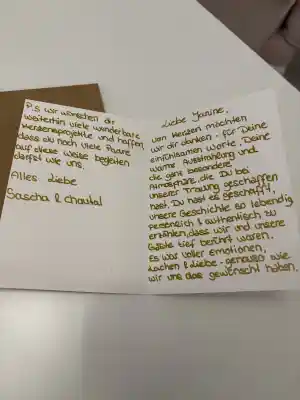 Liebe Janine,
von Herzen möchten
wir dir danken - für Deine
einfühlsamen Worte, Deine
warme Ausstrahlung und
die ganz besondere
Atmosphäre, die Du bei
unserer Trauung geschaffen
hast. Du hast es geschafft,
unsere Geschichte so lebendig,
persönlich & authentisch zu
erzählen, dass wir und unsere
Gäste tief berührt waren.
Es war voller Emotionen,
Lachen & Liebe - genauso wie
wir uns das gewünscht haben.
P.S wir wünschen dir
weiterhin viele wunderbare
Herzensprojekte und hoffen,
dass du noch viele Paare
auf diese Weise begleiten
darfst wie uns.
Alles Liebe
Sascha & Chantal